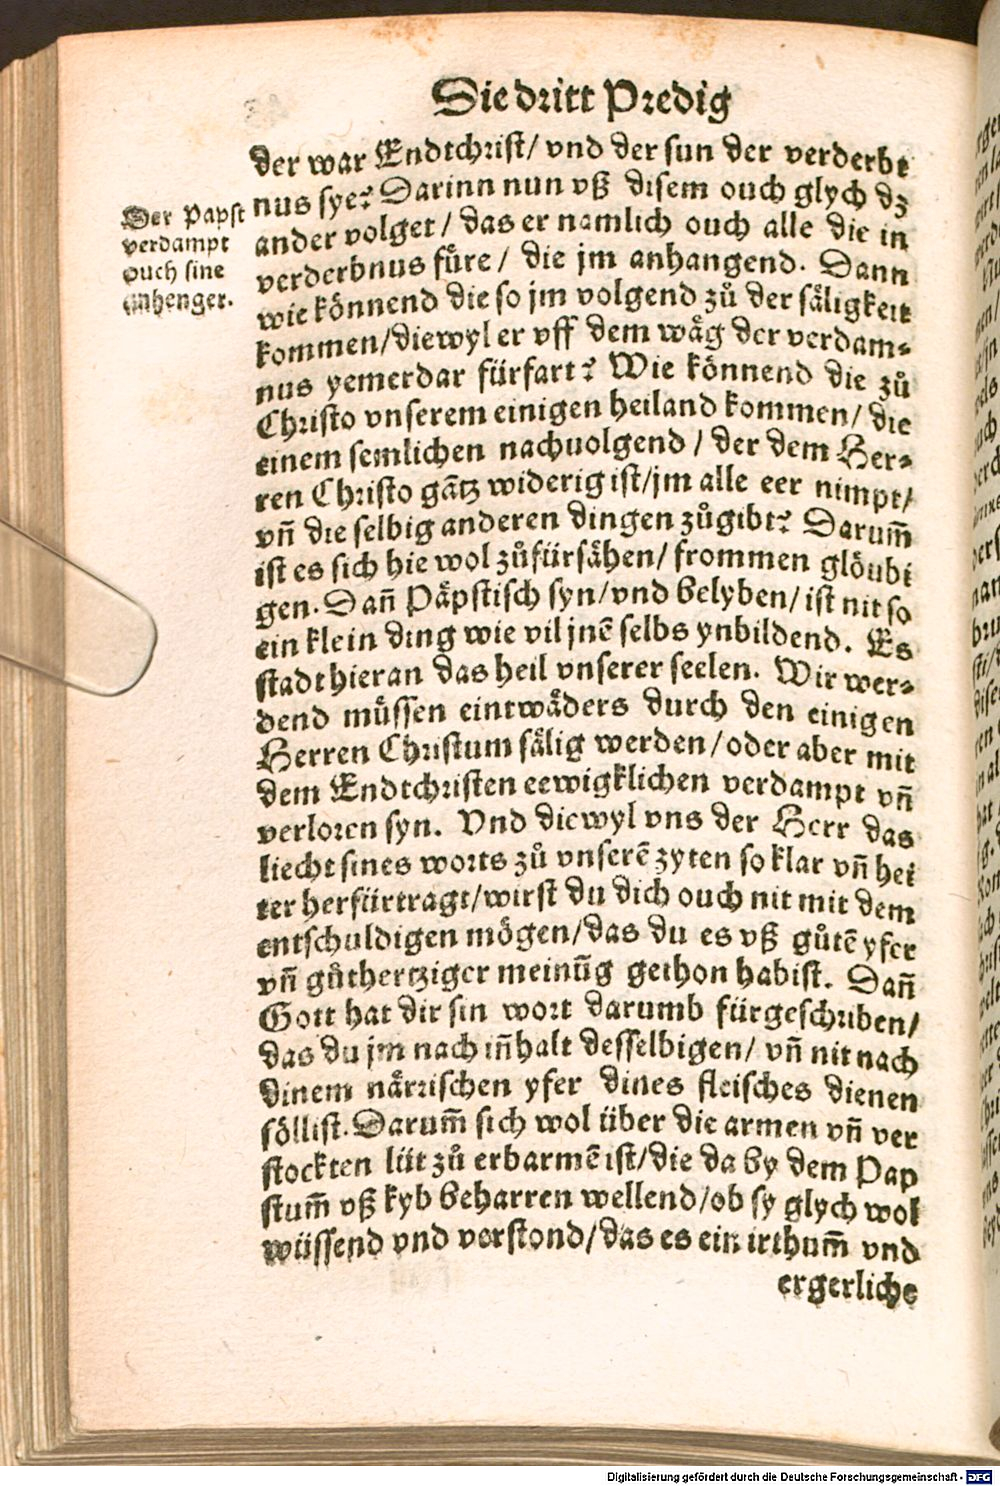 Die dritt Predig
Der Papst
verdampt
ouch sine
anhenger.
der war Endtchrist/ vnd der sun der verderbt
nus sye? Darinn nun vß disem ouch glych dz
ander volget/ das er namlich ouch alle die in
verderbnus füre/ die jm anhangend. Dann
wie könnend die so jm volgend zů der säligkeit
kommen/diewyl er vff dem wäg der verdam⸗
nus yemerdar fürfart? Wie könnend die zů
Christo vnserem einigen heiland kommen/ die
einem semlichen nachuolgend/ der dem Her⸗
ren Christo gātz widerig ist/jm alle eer nimpt/
vn̄ die selbig anderen dingen zůgibt? Darum̄
ist es sich hie wol zůfürsähen/ frommen glöubi
gen. Dan̄ Päpstisch syn/vnd belyben/ ist nit so
ein klein ding wie vil jnē selbs ynbildend. Es
stadt hieran das heil vnserer seelen. Wir wer⸗
dend müssen eintwäders durch den einigen
Herren Christum sälig werden/oder aber mit
dem Endtchristen eewigklichen verdampt vn̄
verloren syn. Vnd diewyl vns der Herr das
liecht sines worts zů vnserē zyten so klar vn̄ hei
ter herfürtragt/wirst du dich ouch nit mit dem
entschuldigen mögen/das du es vß gůtē yfer
vn̄ gůthertziger meinūg gethon habist. Dan̄
Gott hat dir sin wort darumb fürgeschriben/
das du jm nach in̄halt desselbigen/ vn̄ nit nach
dinem närrischen yfer dines fleisches dienen
söllist. Darum̄ sich wol über die armen vn̄ ver
stockten lüt zů erbarmē ist/die da by dem Pap
stum̄ vß kyb beharren wellend/ob sy glych wol
wüssend vnd verstond/das es ein irthum̄ vnd
ergerliche
Digitalisierung gefördert durch die Deutsche Forschungsgemeinschaft - DFG